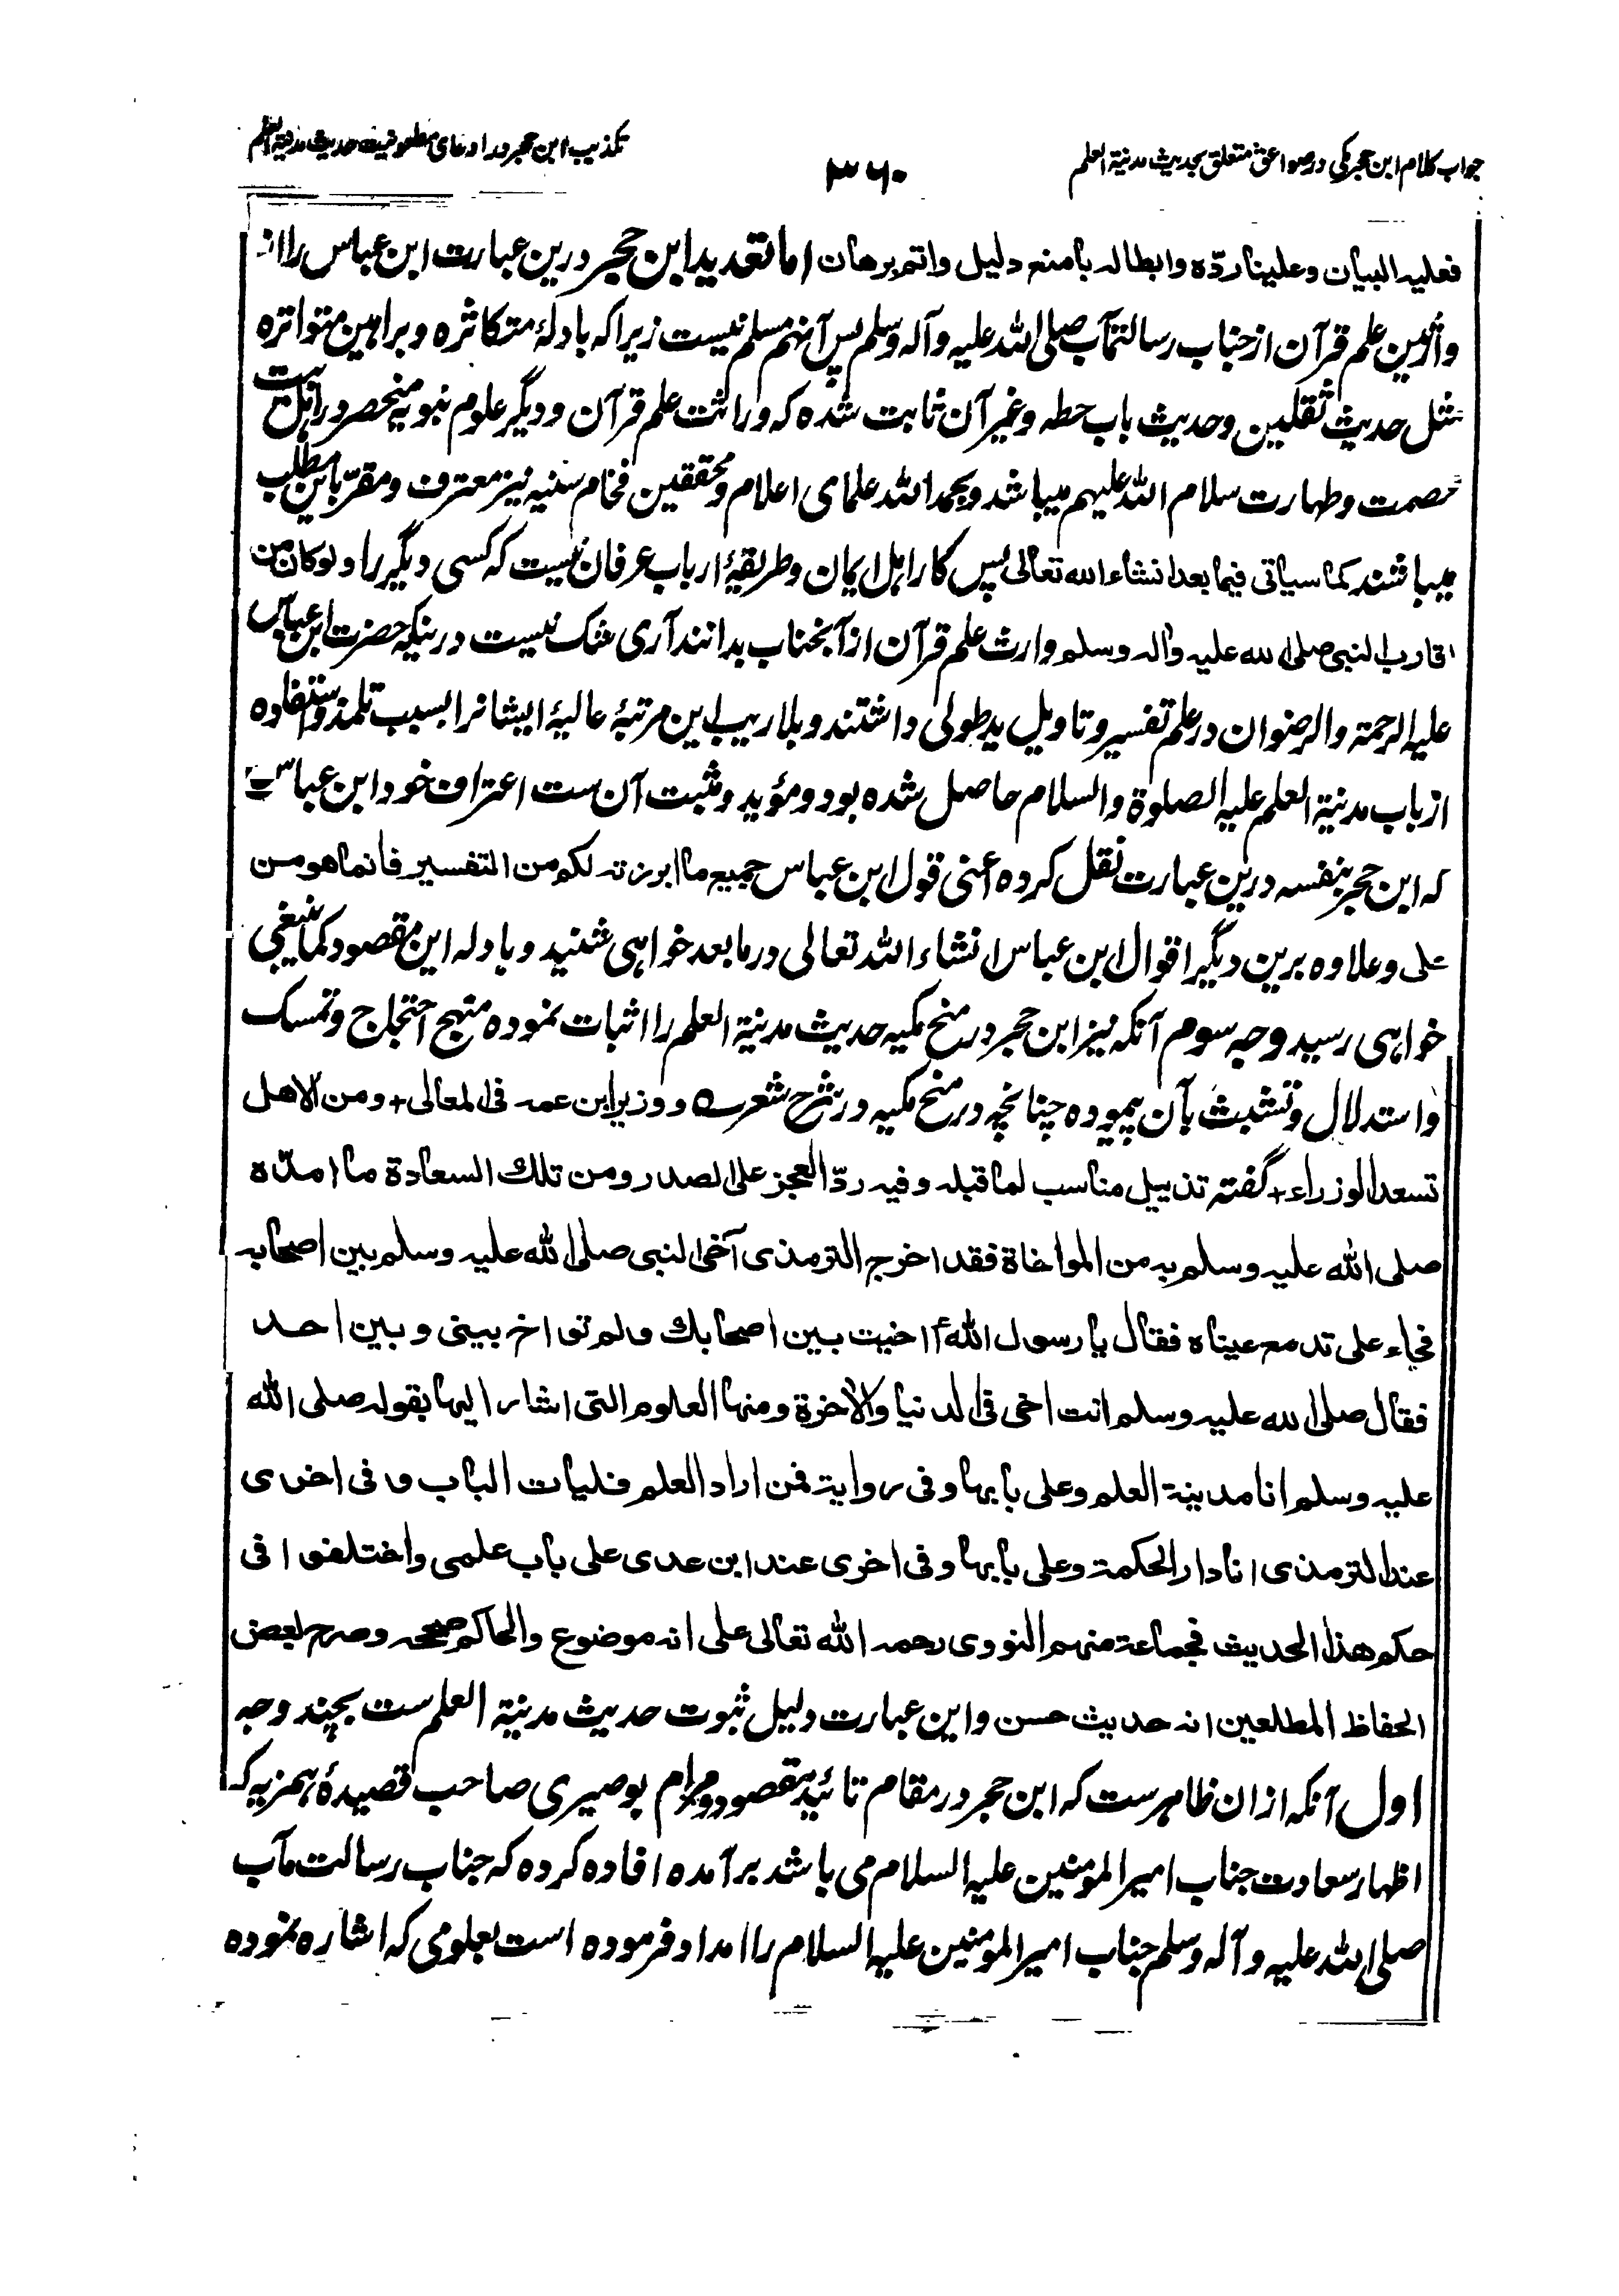 جواب کلام ابن حجر مکی در صواعق متعلق بحدیث مدینة العلم
۳۶۰
تکذیب ابن حجر در ادعای مطعونیت حدیث مدینة العلم
فعلیه البیان وعلینا ردّه وابطاله بامنع دلیل واتم برهان اما تعدید ابن حجر درین عبارت ابن عباس را از
وارثین علم قرآن از جناب رسالتمآب صلی الله علیه وآله وسلم پس آنهم مسلم نیست زیرا که بادلهٔ متکاثره و براهین متواتره
مثل حدیث ثقلین و حدیث باب حطه و غیر آن ثابت شده که وراثت علم قرآن و دیگر علوم نبویه منحصر در اهل بیت
عصمت و طهارت سلام الله علیهم میباشد و بحمد الله علمای اعلام و محققین فخام سنیه نیز معترف و مقرّ باین مطلب
میباشند کما سیاتی فیما بعد انشاء الله تعالی پس کار اهل ایمان و طریقهٔ ارباب عرفان نیست که کسی دیگر را ولو کان من
اقارب النبی صلی الله علیه واله وسلم وارث علم قرآن از آنجناب بدانند آری شک نیست درینکه حضرت ابن عباس
علیه الرحمة والرضوان در علم تفسیر و تاویل ید طولی داشتند و بلا ریب این مرتبهٔ عالیهٔ ایشانرا بسبب تلمذ و استفاده
از باب مدینة العلم علیه الصلوة والسلام حاصل شده بود و مؤید و مثبت آن ست اعتراف خود ابن عباس
که ابن حجر بنفسه درین عبارت نقل کرده اعنی قول ابن عباس جمیع ما ابرزته لکم من التفسیر فانما هو من
علی و علاوه برین دیگر اقوال ابن عباس انشاء الله تعالی در ما بعد خواهی شنید و بادله این مقصود کما ینبغی
خواهی رسید وجه سوم آنکه نیز ابن حجر در منح مکیه حدیث مدینة العلم را اثبات نموده منهج احتجاج و تمسک
و استدلال و تشبث بآن پیموده چنانچه در منح مکیه در شرح شعر ے ووزیر ابن عمه فی المعالی + ومن الاهل
تسعد الوزراء + گفته تذییل مناسب لما قبله وفیه ردّ العجز علی الصدر ومن تلک السعادة ما امدّه
صلی الله علیه وسلم به من المواخاة فقد اخرج الترمذی آخی النبی صلی الله علیه وسلم بین اصحابه
فجاء علی تدمع عیناه فقال یا رسول الله أاخیت بین اصحابك ولم تواخ بینی وبین احد
فقال صلی الله علیه وسلم انت اخی فی الدنیا والأخرة ومنها العلوم التی اشار الیها بقوله صلی الله
علیه وسلم انا مدینة العلم وعلی بابها وفی روایة فمن اراد العلم فلیات الباب وفی اخری
عند الترمذی انا دار الحکمة وعلی بابها وفی اخری عند ابن عدی علی باب علمی واختلفوا فی
حکم هذا الحدیث فجماعة منهم النووی رحمه الله تعالی علی انه موضوع والحاکم صححه وصرح بعض
الحفاظ المطلعین انه حدیث حسن و این عبارت دلیل ثبوت حدیث مدینة العلم ست بچند وجه
اول آنکه ازان ظاهرست که ابن حجر در مقام تائید مقصود و مرام بوصیری صاحب قصیدهٔ همزیه که
اظهار سعادت جناب امیر المومنین علیه السلام می باشد برآمده افاده کرده که جناب رسالت مآب
صلی الله علیه وآله وسلم جناب امیر المومنین علیه السلام را امداد فرموده است بعلومی که اشاره نموده